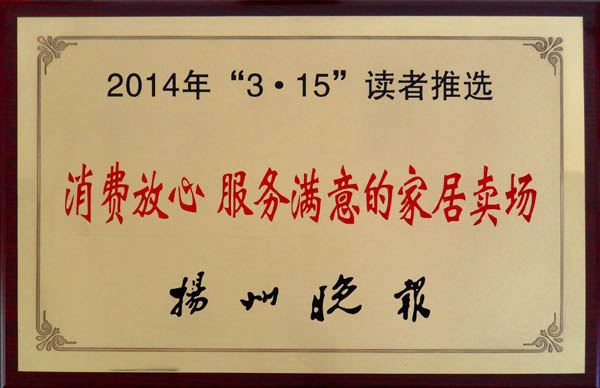 2014年“3·15”读者推选
消费放心 服务满意的家居卖场
揚州晚報